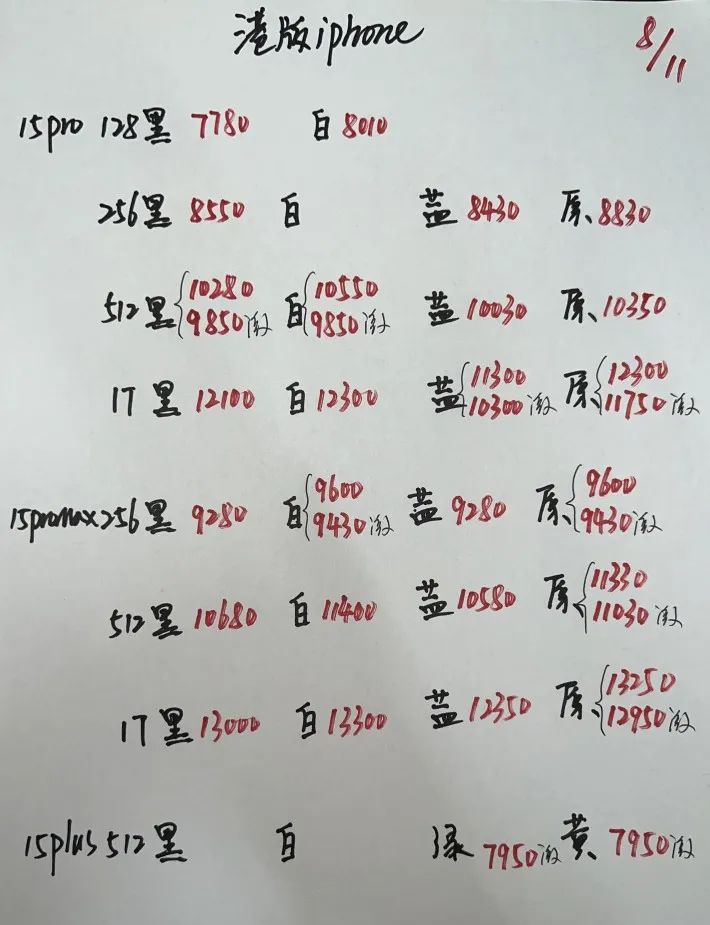 港版iphone 8/11
15pro 128黑 7780 白 8010
256黑 8550 白 蓝 8430 原 8830
512黑 10280 白 10550 蓝 10030 原 10350
9850激 9850激
1T 黑 12100 白 12300 蓝 11300 原 12300
10300激 11750激
15promax256黑 9280 白 9600 蓝 9280 原 9600
9430激 9430激
512黑 10680 白 11400 蓝 10580 原 11330
11030激
1T 黑 13000 白 13300 蓝 12350 原 13250
12950激
15plus 512黑 白 绿 7950激 黄 7950激